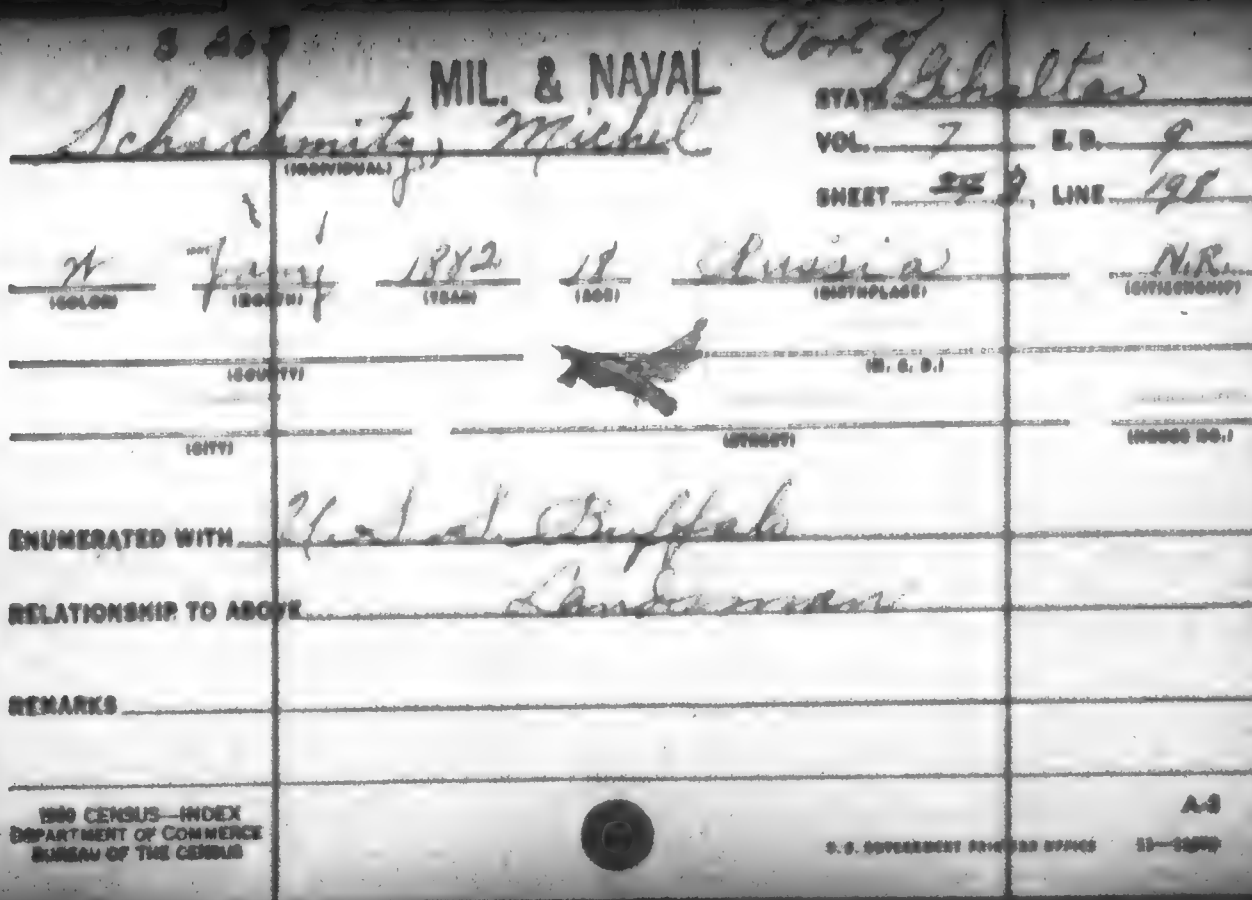 Port of
MIL. & NAVAL
STATE Gibraltar
Schachmitz, Michel
(INDIVIDUAL)
VOL. 7 E. D. 9
SHEET 8, LINE 198
W 1882 18 Russia N.R.
(COLOR) (MONTH) (YEAR) (AGE) (BIRTHPLACE) (CITIZENSHIP)
(COUNTY) (M. C. D.)
(CITY) (STREET) (HOUSE NO.)
ENUMERATED WITH Buffalo
RELATIONSHIP TO ABOVE Landsman
REMARKS
1900 CENSUS—INDEX
DEPARTMENT OF COMMERCE
BUREAU OF THE CENSUS
A-8
U. S. GOVERNMENT PRINTING OFFICE